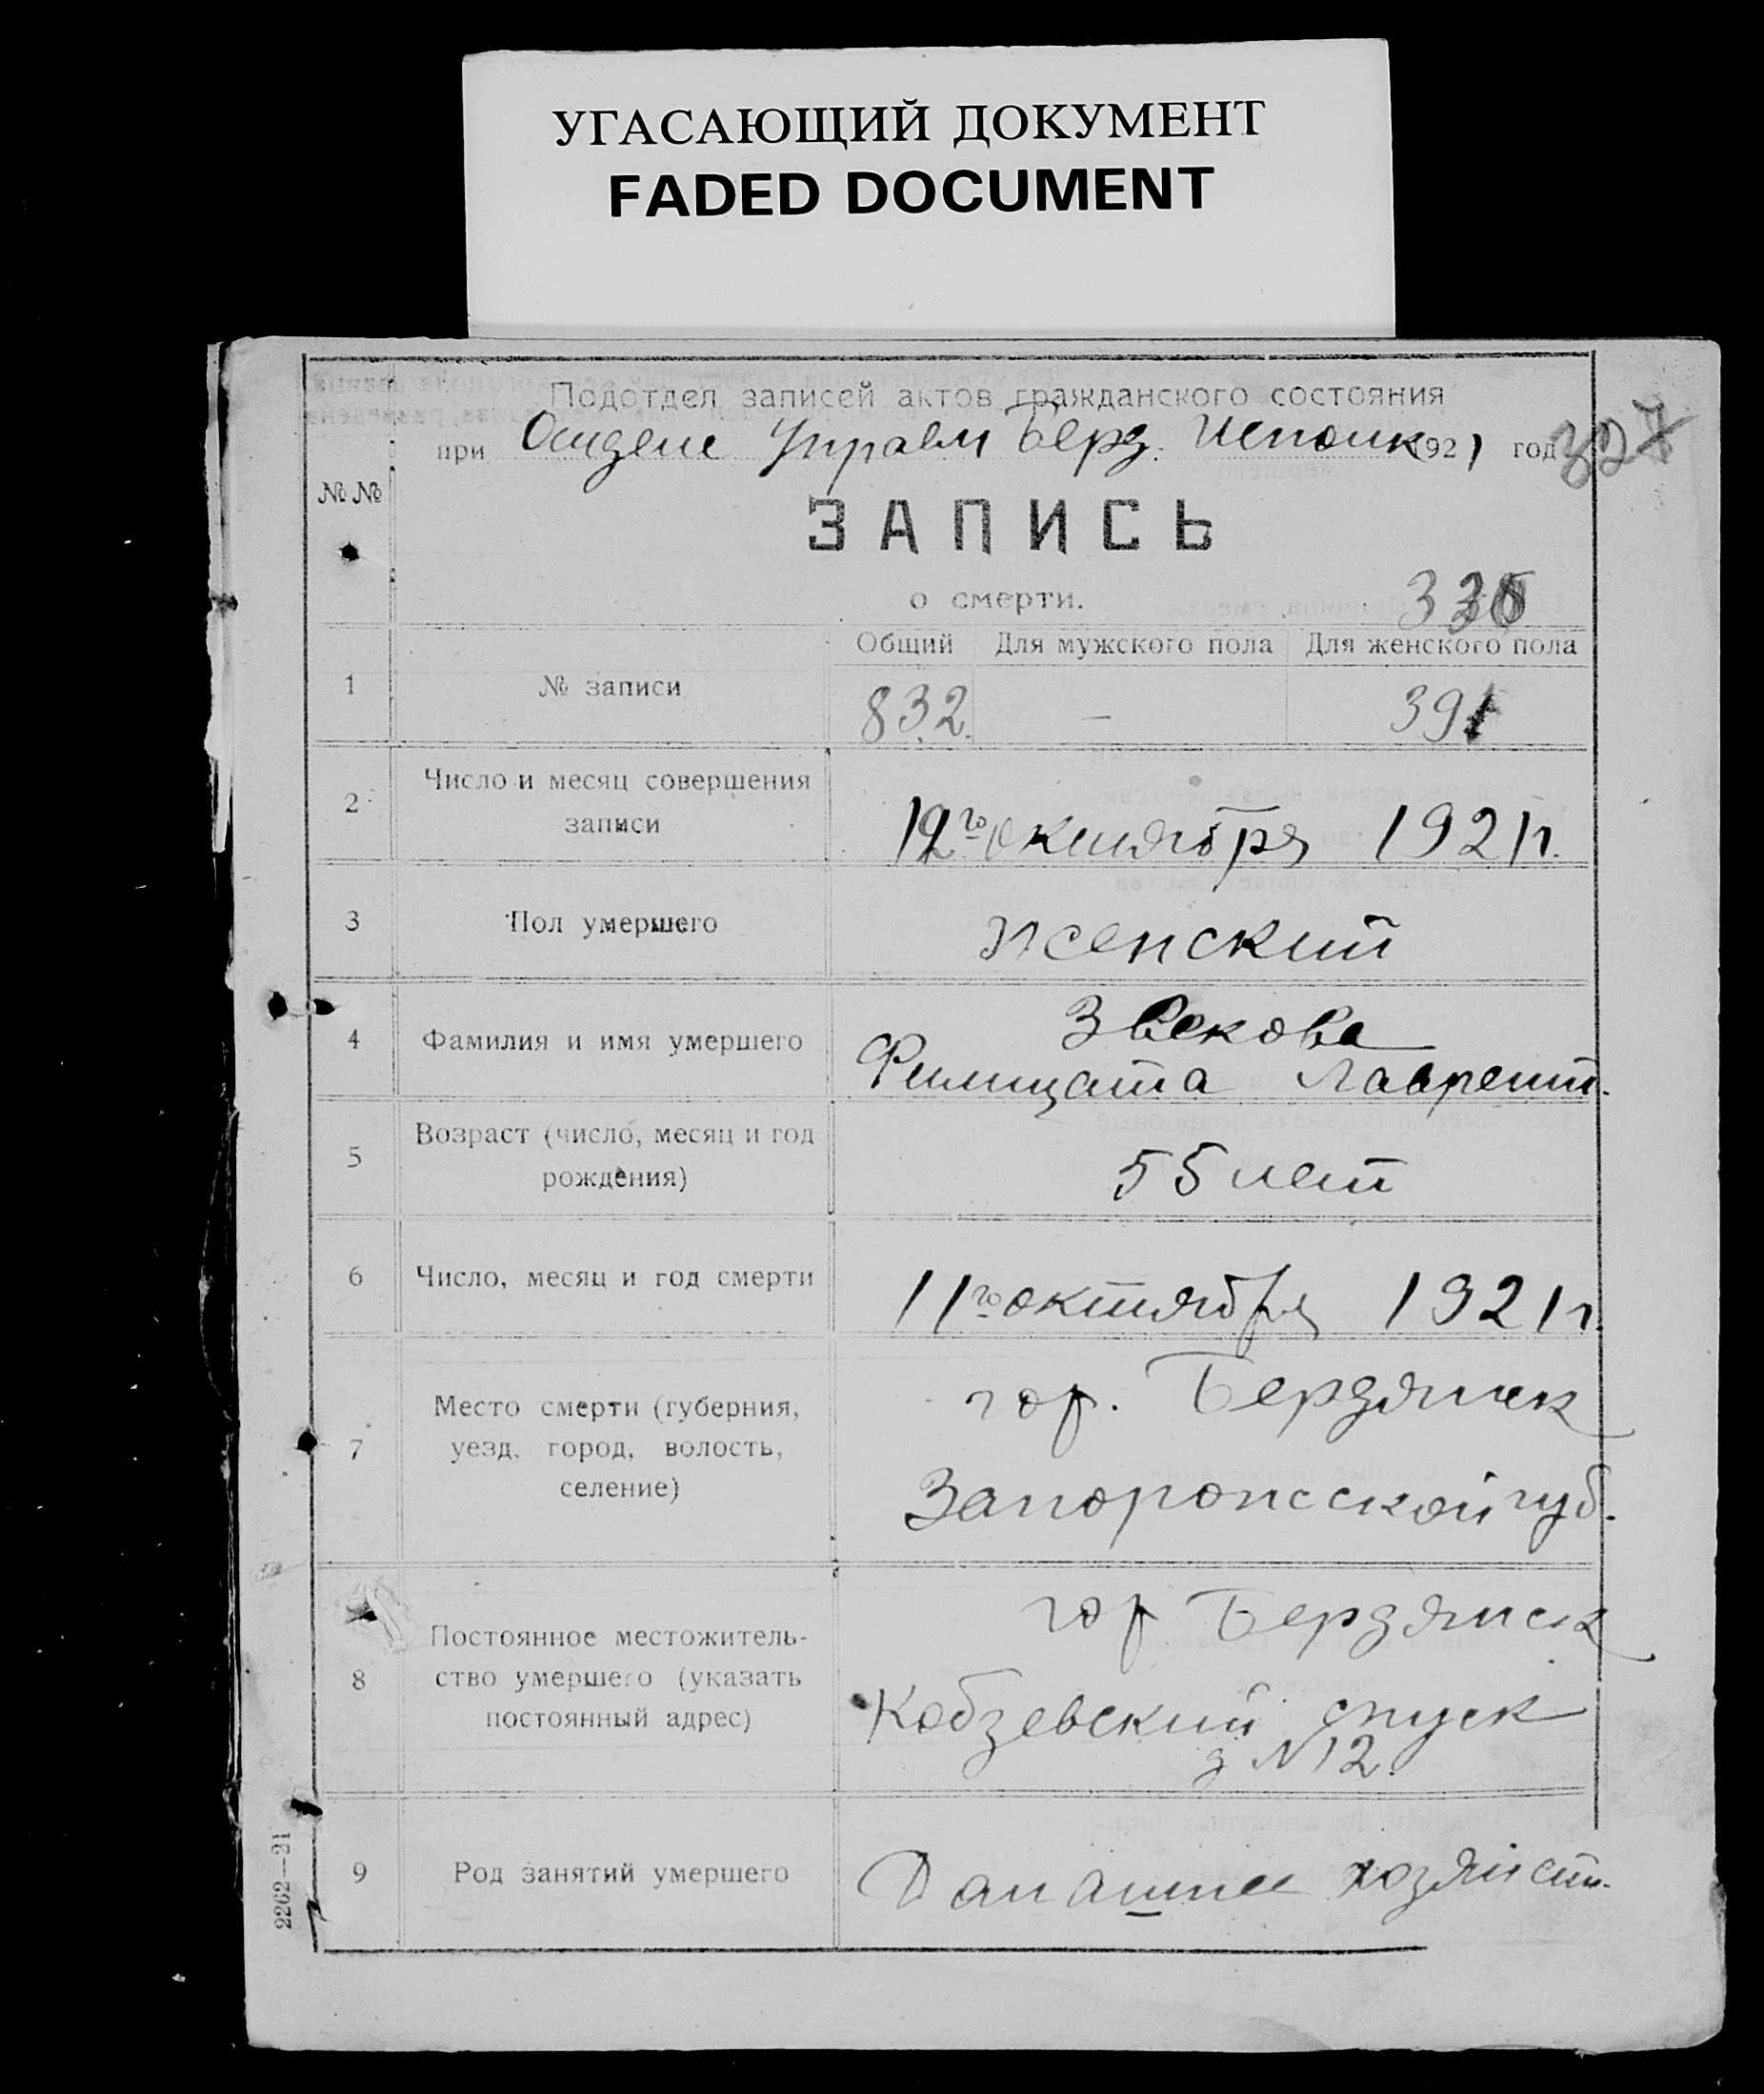 УГАСАЮЩИЙ ДОКУМЕНТ
FADED DOCUMENT
Подотдел записей актов гражданского состояния
при Отделе Управл Берд. Исполк 1921 год
327
№ №
ЗАПИСЬ
о смерти.
Общий Для мужского пола Для женского пола
1 № записи 832. — 391
2 Число и месяц совершения
записи
12го октября 1921 г.
3 Пол умершего женский
Звекова
4 Фамилия и имя умершего
Филицата Лаврент.
5 Возраст (число, месяц и год
рождения)
55 лет
6 Число, месяц и год смерти 11го октября 1921 г.
7 Место смерти (губерния,
уезд, город, волость,
селение)
гор. Бердянск
Запорожской губ.
8 Постоянное местожитель-
ство умершего (указать
постоянный адрес)
гор Бердянск
Кобзевский спуск
д N 12.
9 Род занятий умершего Домашнее хозяйств.
2262—21